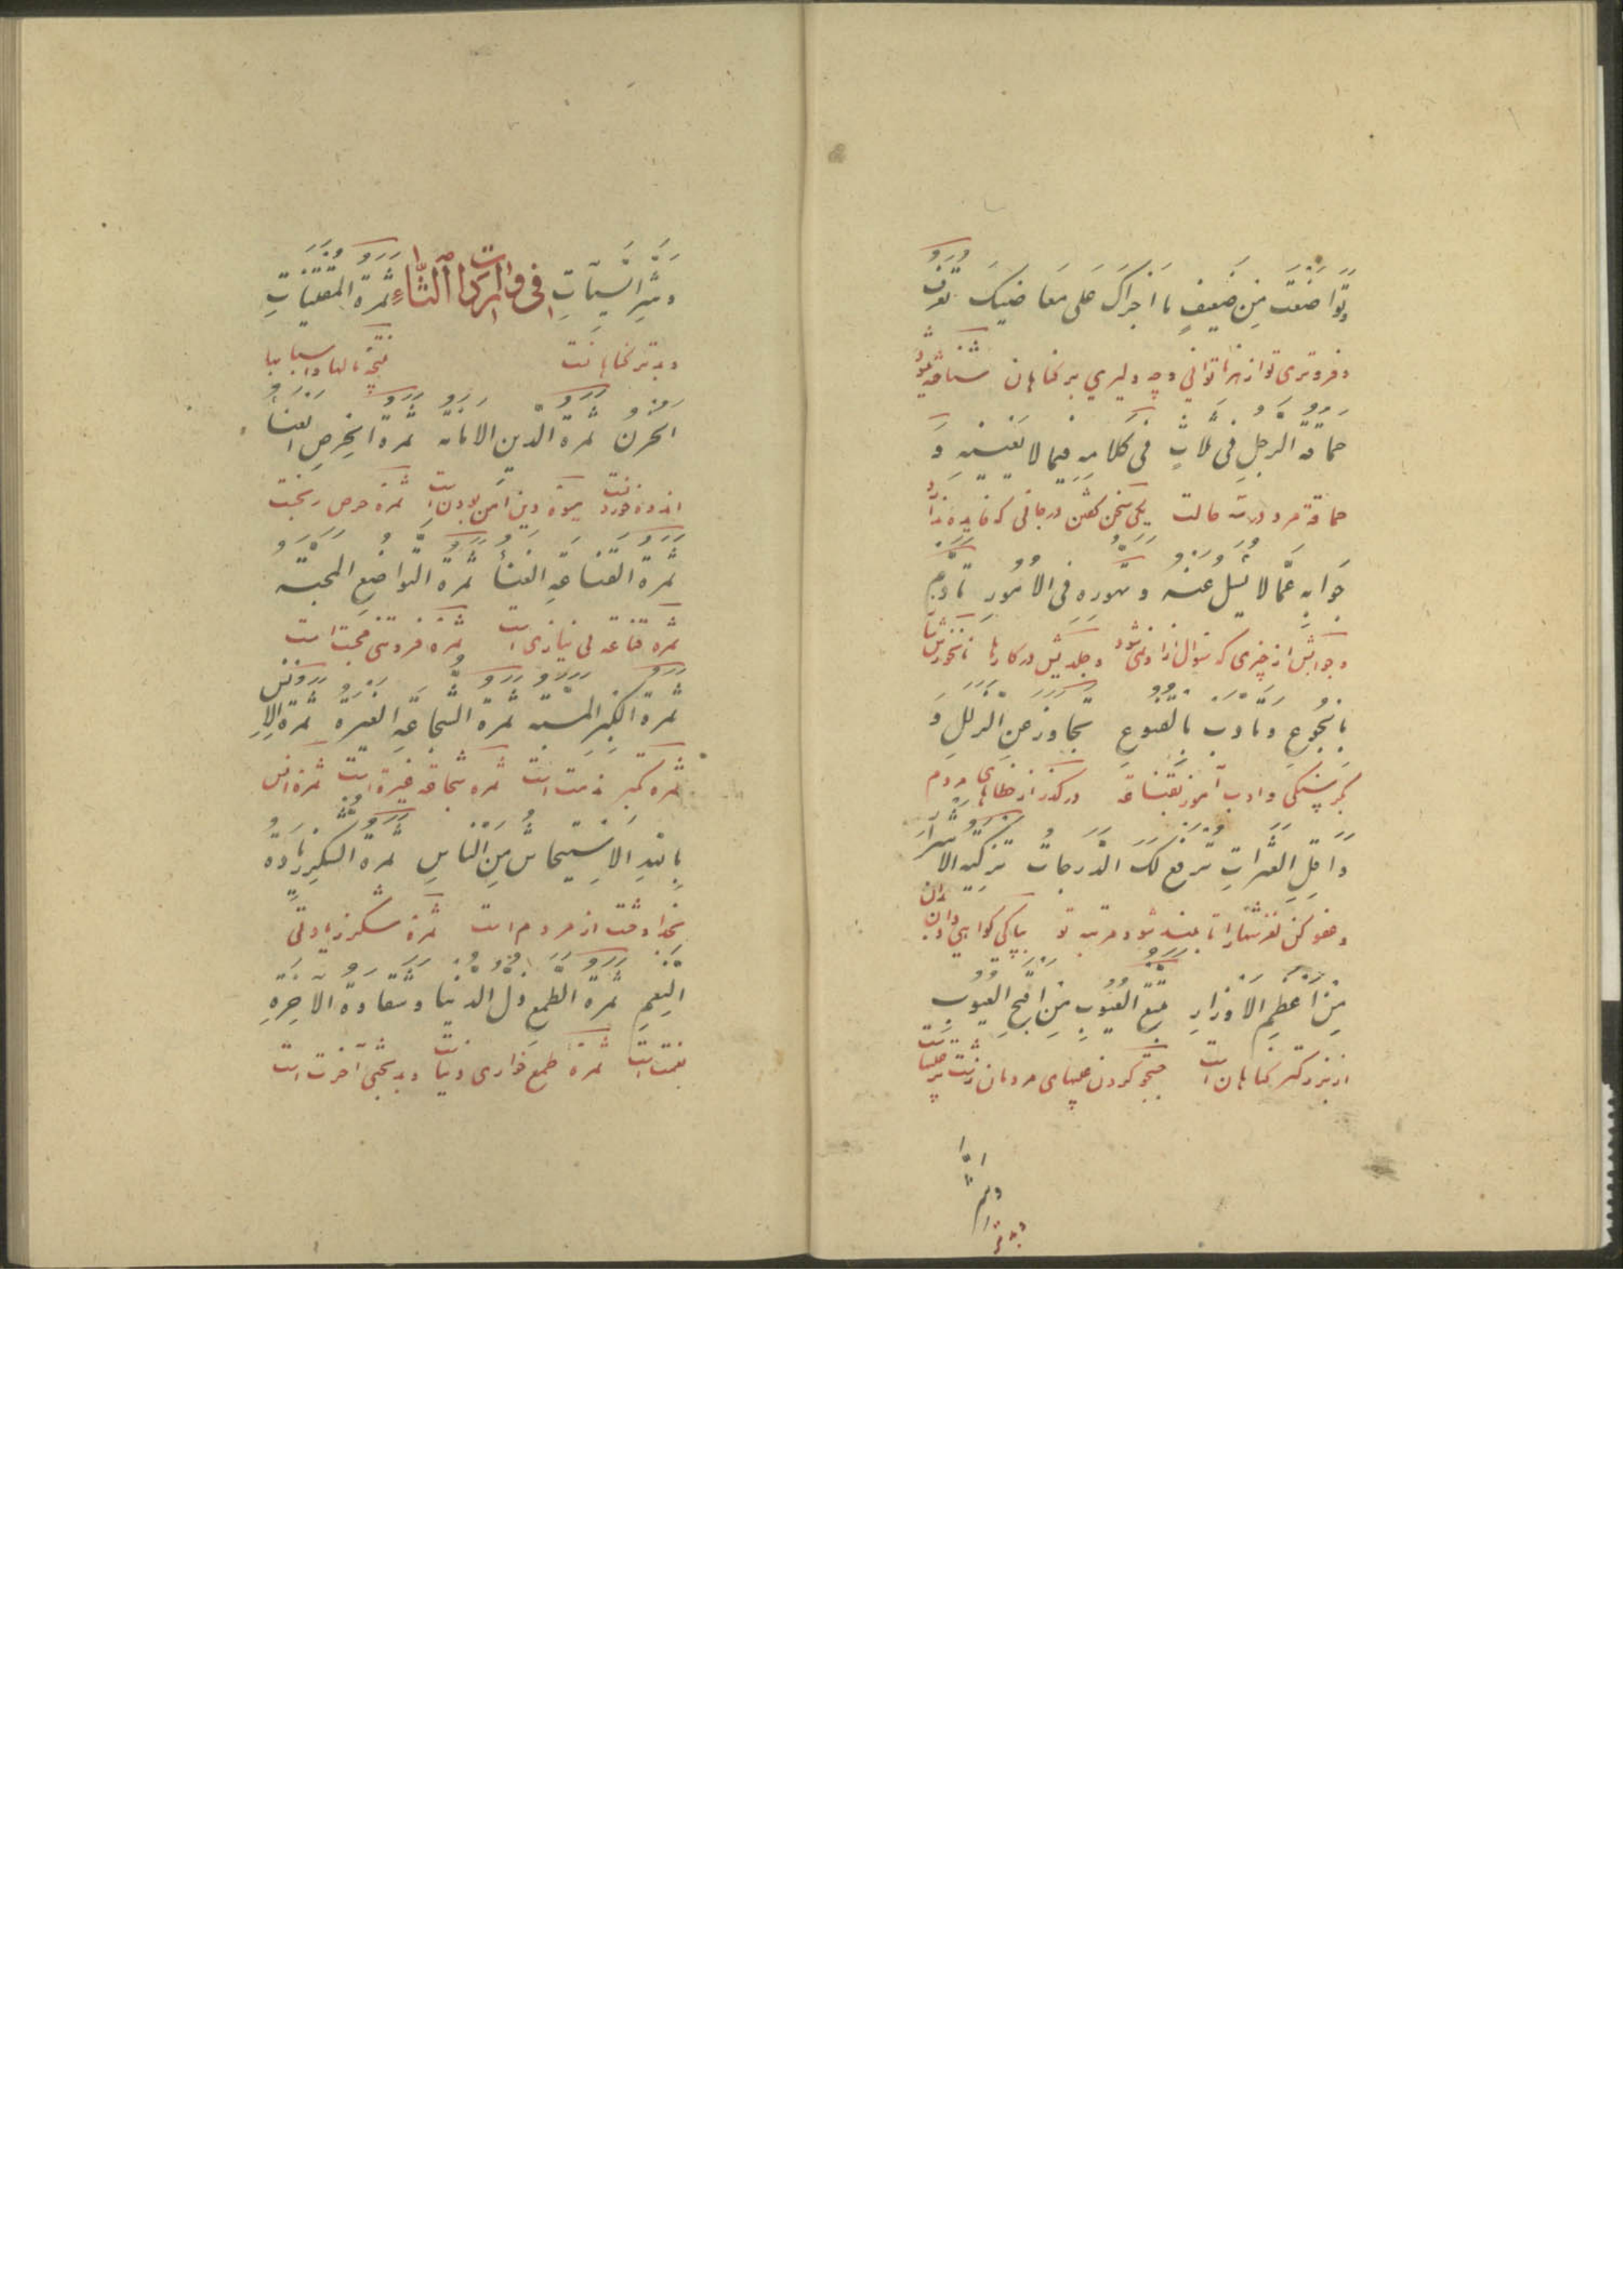 وتواضعت من ضعيف ما اجراك على معاصيك تعرف
و فروتری تو از هر ناتوانی و چه دلیری بر گناهان شناخته میشود
حماقة الرجل فى ثلاث فى كلامه فيما لا يعنيه و
حماقة مرد در سه حالت یکی سخن گفتن در جائی که فایده ندارد
جوابه عما لا يسئل عنه و تهوره فى الامور تادم
و جوابش از چیزی که سؤال از او نمی شود و در کارها
بالجوع و تادب بالقنوع تجاوز عن الزلل و
بگرسنگی و ادب آموز بقناعة درگذر از خطاهای مردم
واقل العثرات ترفع لك الدرجات تزكية الاشرار
و عفو کن لغزشها را تا بلند شود مرتبه تو پاکی گواهی دادن بدان
من اعظم الاوزار تتبع العيوب من اقبح العيوب
از بزرگتر گناهان است جستجو کردن عیبهای مردمان زشت تر عیبها است
وشر السيئات فى ما ورد من الثاء ثمرة المقتنيات
و بدتر گناهانست نتیجه مالها و اسبابها
الحزن ثمرة الدين الامانه ثمرة الحرص العناء
اندوه خوردنست میوه دین امین بودن است ثمره حرص رنجست
ثمرة القناعة الغناء ثمرة التواضع المحبته
ثمره قناعة بی نیازی است ثمره فروتنی محبت است
ثمرة الكبر المسبه ثمرة الشجاعة الغيرة ثمرة الانس
ثمره تکبر مذمت است ثمره شجاعة غیرة است ثمره انس
بالله الاستيحاش من الناس ثمرة الشكر زيادة
بخدا وحشت از مردم است ثمره شکر زیادتی
النعم ثمرة الطمع ذل الدنيا و شقاوة الاخرة
نعمت است ثمره طمع خواری دنیاست و بدبختی آخرت است